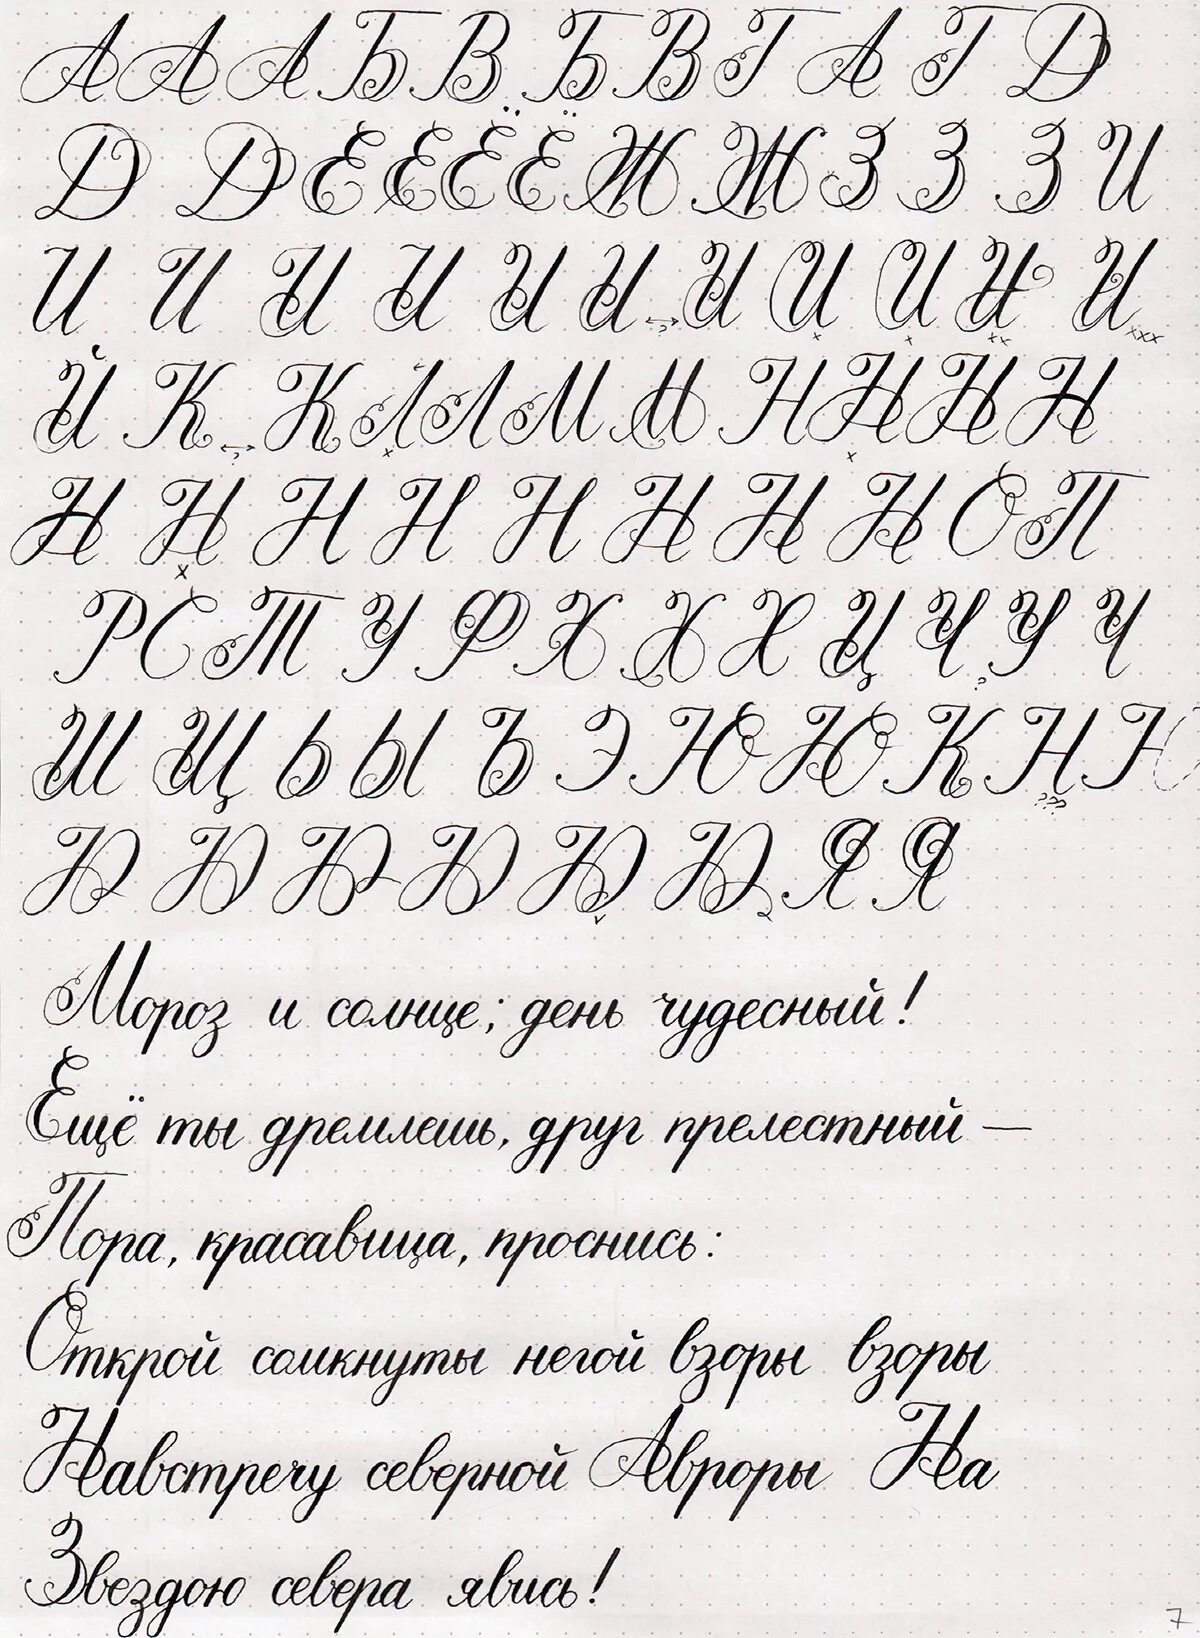 А А А Б В Б В Г А Г Д
Д Д Е Е Ё Ё Ж Ж З З З И
И И И И И И ? И И И И И xxx
Й К ? К Л Л М М Н Н Н Н
Н Н Н Н Н Н Н Н О П
Р С Т У Ф Х Х Х Ц Ч ? У Ч
Ш Щ Ь Ы Ъ Э Ю Ю К Н ??? Ю
Ю Ю Ю Ю Ю Ю Я Я
Мороз и солнце; день чудесный!
Ещё ты дремлешь, друг прелестный —
Пора, красавица, проснись:
Открой сомкнуты негой взоры взоры
Навстречу северной Авроры На
Звездою севера явись!
7